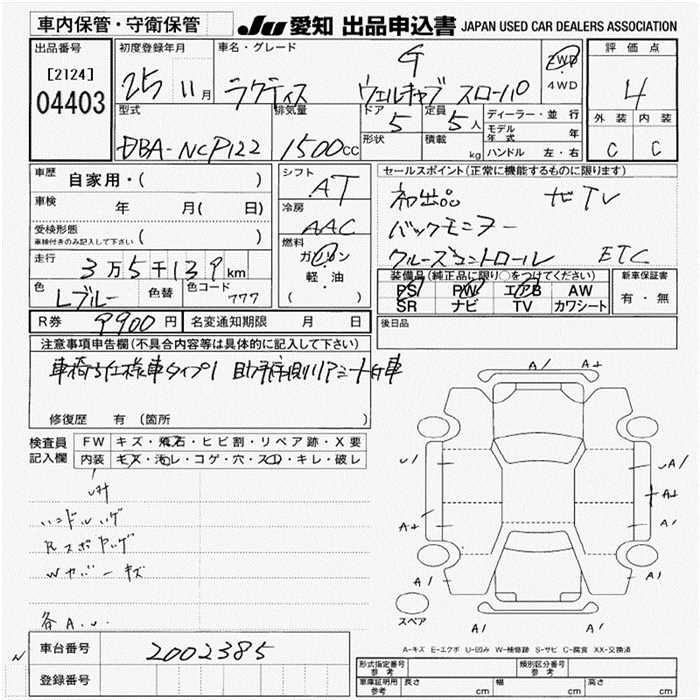 車内保管・守衛保管
JU 愛知 出品申込書 JAPAN USED CAR DEALERS ASSOCIATION
出品番号
[2124]
04403
初度登録年月
25 11月
車名・グレード
G
ラクティス ウェルキャブ スローパ
2WD
4WD
評価点
4
外装 内装
C C
型式
DBA-NCP122
排気量
1500cc
ドア
5
形状
定員
5人
積載
kg
ディーラー・並行
モデル年式 年
ハンドル 左・右
車歴 自家用・( )
車検 年 月( 日)
受検形態
車検付きのみ記入して下さい ( )
走行 3万5千139km
色 Lブルー 色替 色コード 777
シフト
AT
冷房
AAC
燃料
ガソリン
軽・油
( )
セールスポイント(正常に機能するものに限ります)
初出品 ナビTV
バックモニター
クルーズコントロール ETC
装備品(純正品に限り○をつけてください)
PS PW エアB AW
SR ナビ TV カワシート
新車保証書
有・無
後日品
R券 9900円 名変通知期限 月 日
注意事項申告欄(不具合内容等は具体的に記入して下さい)
車椅子仕様車タイプ1
修復歴 有 (箇所 )
検査員記入欄
FW キズ・飛石・ヒビ割・リペア跡・X要
内装 キズ・汚レ・コゲ・穴・スレ・キレ・破レ
ハンドルハゲ
各A.U.
A1 A1
U1 U1
A+ A+
A1
A1 A1
A1 A1
スペア
A-キズ E-エクボ U-凹み W-補修跡 S-サビ C-腐食 XX-交換済
車台番号 2002385
登録番号
形式指定番号 参考
類別区分番号 参考
車庫証明用 参考 長さ cm 幅 cm 高さ cm